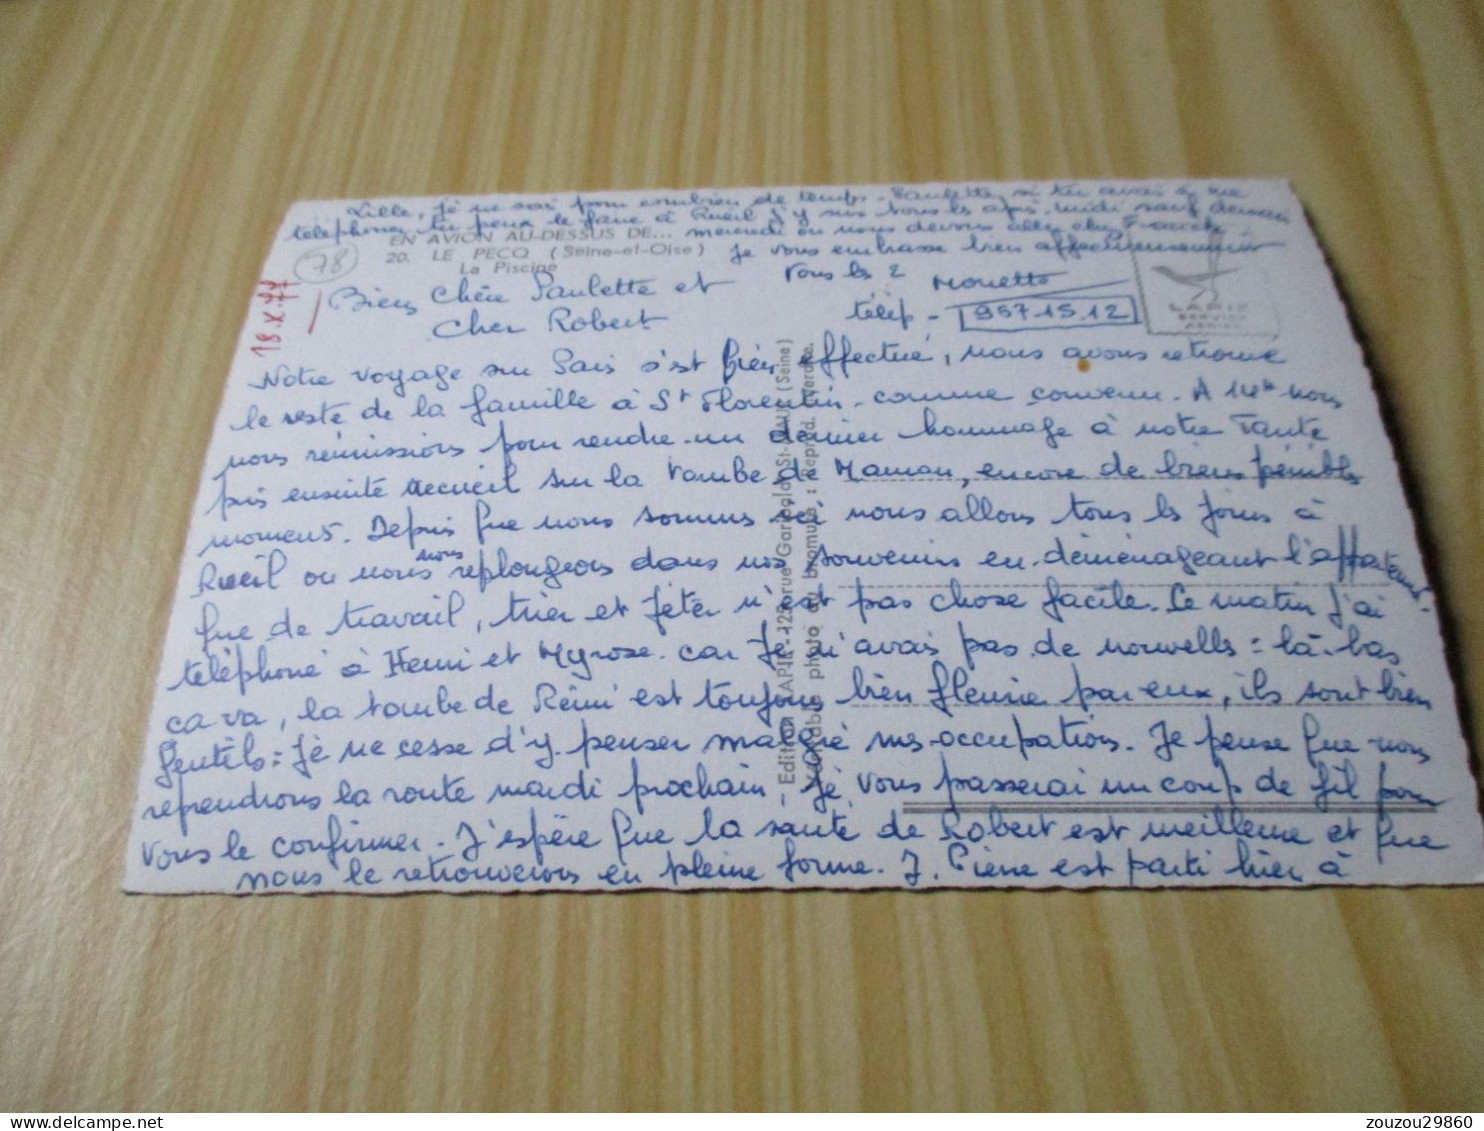 Lille, je ne sais pour combien de temps. Paulette, si tu avais à me
téléphoner tu peux le faire à Rueil j'y suis tous les après-midi sauf demain
mercredi où nous devons aller chez
EN AVION AU-DESSUS DE...
20. LE PECQ (Seine-et-Oise)
La Piscine
Je vous embrasse bien affectueusement
tous les 2
Mouette
télép - 957.15.12
LAPIE
SERVICE
AERIEN
78
18.X.77
Bien Chère Paulette et
Cher Robert
Notre voyage sur Paris s'est bien effectué, nous avons retrouvé
le reste de la famille à St Florentin comme convenu. A 14h nous
nous réunissions pour rendre un dernier hommage à notre Tante
puis ensuite recueil sur la tombe de Maman, encore de biens pénibles
moments. Depuis que nous sommes ici nous allons tous les jours à
Rueil ou nous nous replongeons dans nos souvenirs en déménageant l'appartement.
que de travail, trier et jeter n'est pas chose facile. Ce matin j'ai
téléphoné à Henri et Myrose car je n'avais pas de nouvelles : là-bas
ça va, la tombe de Rémi est toujours bien fleurie par eux, ils sont bien
gentils : Je ne cesse d'y penser malgré mes occupations. Je pense que nous
reprendrons la route mardi prochain, Je vous passerai un coup de fil pour
vous le confirmer. J'espère que la santé de Robert est meilleure et que
nous le retrouverons en pleine forme. J. Pierre est parti hier à
Edition LAPIE - 128, rue Garibaldi St-MAUR (Seine)
Véritable photo au bromure : Reprod. Interdite.
zouzou29860